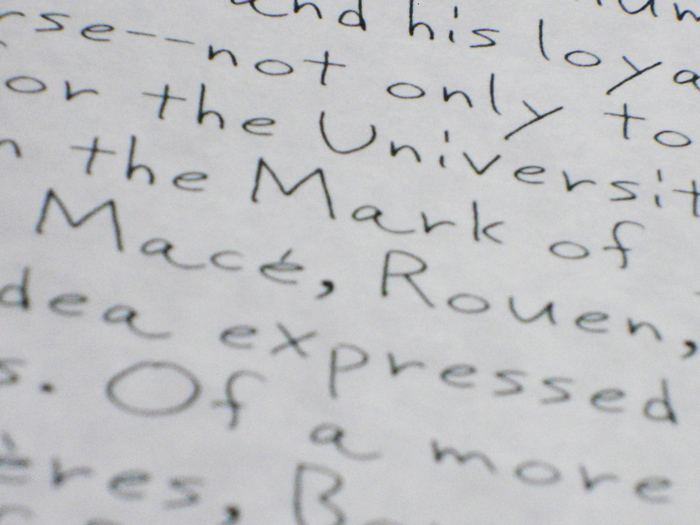 and his loya
rse--not only to
or the Universit
n the Mark of
Macé, Rouen,
dea expressed
s. Of a more
ères, B